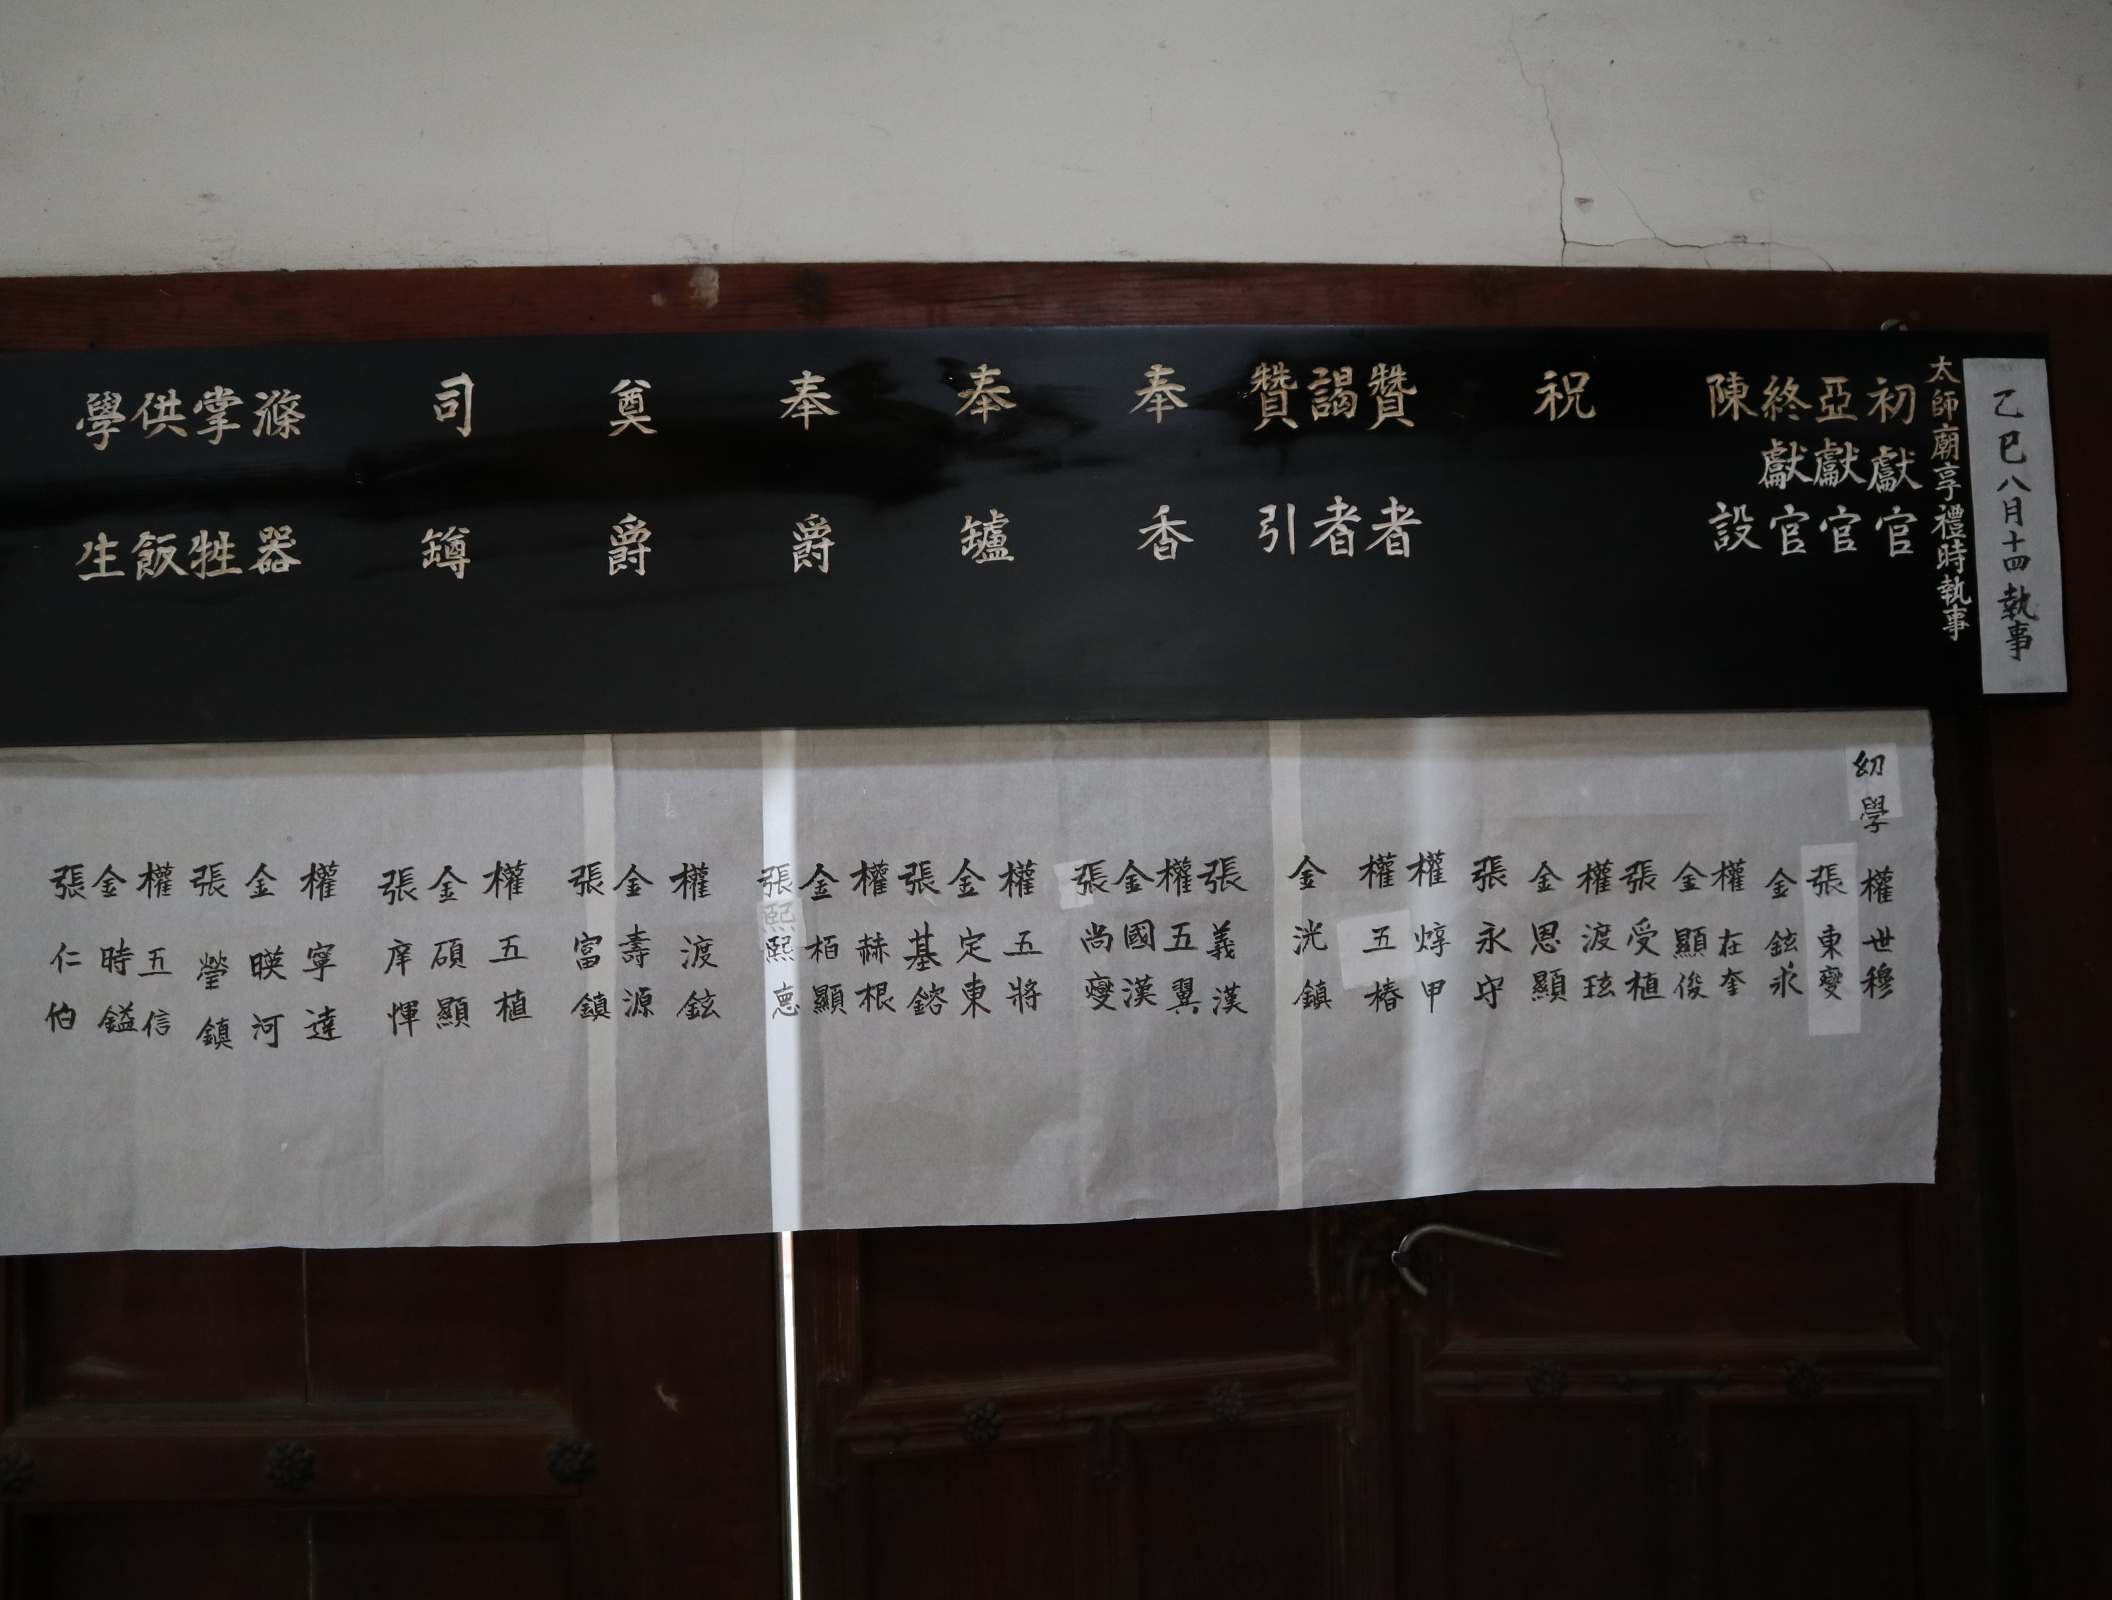 乙巳八月十四執事
太師廟享禮時執事
初獻官
亞獻官
終獻官
陳設
祝
贊者
謁者
贊引
奉香
奉鑪
奉爵
奠爵
司罇
滌器
掌牲
供飯
學生
幼學
權世穆
張東燮
金鉉永
權在奎
金顯俊
張受植
權渡玹
金思顯
張永守
權焞甲
權五椿
金洸鎮
張義漢
權五翼
金國漢
張尚燮
權五將
金定東
張基鎔
權赫根
金栢顯
張熙
權渡鉉
金壽源
張富鎮
權五植
金碩顯
張庠惲
權寧達
金暎河
張瑩鎮
權五信
金時鎰
張仁伯